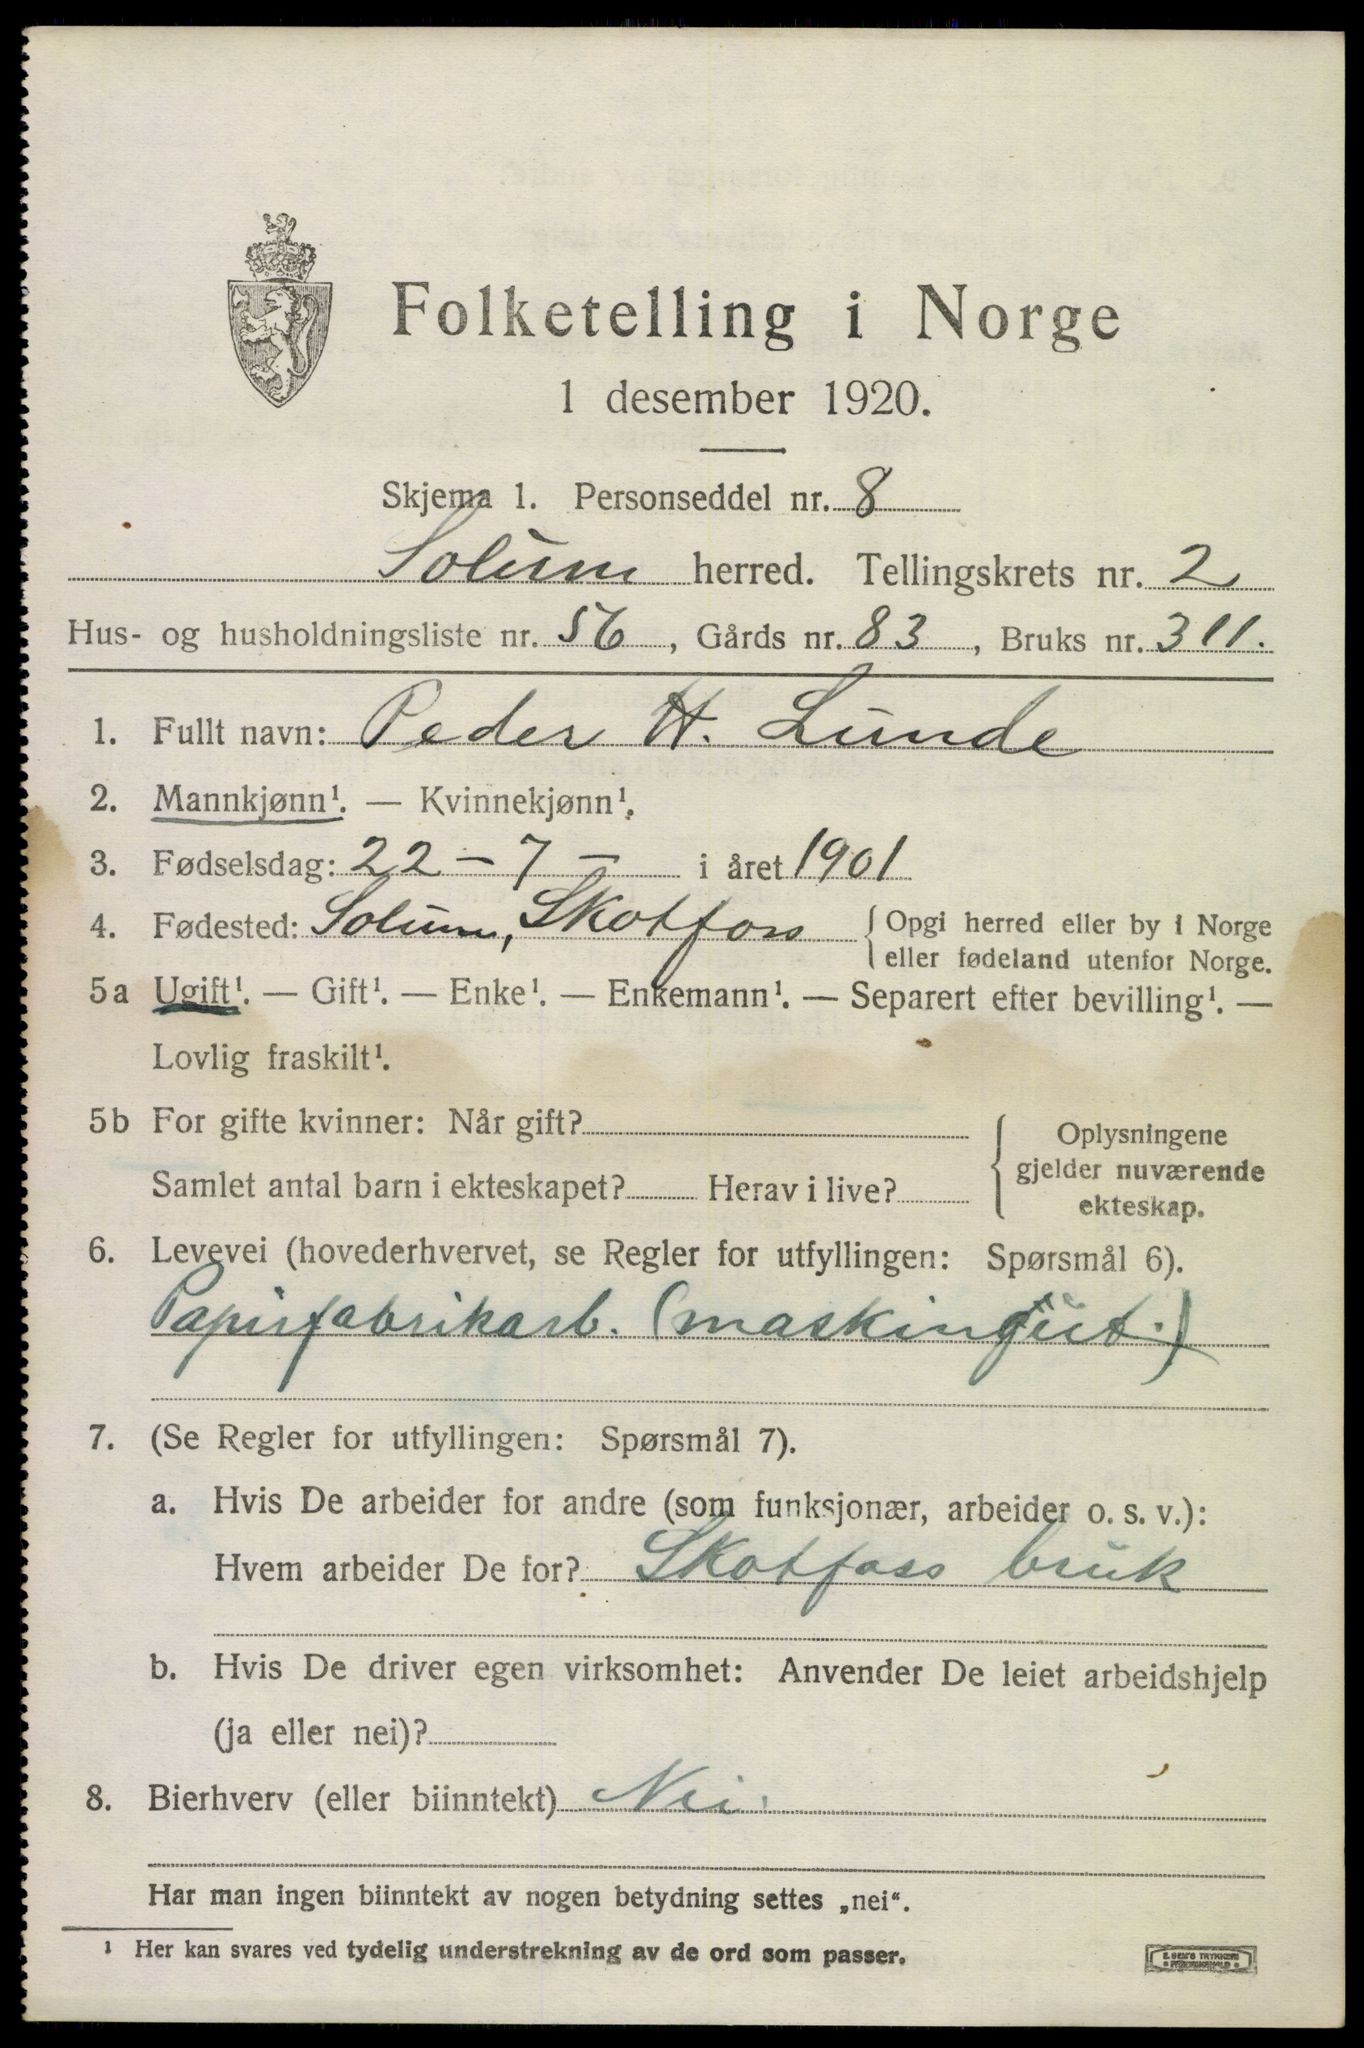 Folketelling i Norge
1 desember 1920.
Skjema 1. Personseddel nr. 8
Solum herred. Tellingskrets nr. 2
Hus- og husholdningsliste nr. 56, Gårds nr. 83, Bruks nr. 311.
1. Fullt navn: Peder H. Lunde
2. Mannkjønn¹. — Kvinnekjønn¹.
3. Fødselsdag: 22 – 7 – i året 1901
4. Fødested: Solum, Skotfoss { Opgi herred eller by i Norge
eller fødeland utenfor Norge.
5a Ugift¹. — Gift¹. — Enke¹. — Enkemann¹. — Separert efter bevilling¹. —
Lovlig fraskilt¹.
5b For gifte kvinner: Når gift?
Samlet antal barn i ekteskapet? Herav i live?
Oplysningene
gjelder nuværende
ekteskap.
6. Levevei (hovederhvervet, se Regler for utfyllingen: Spørsmål 6).
Papirfabrikarb. (maskingut.)
7. (Se Regler for utfyllingen: Spørsmål 7).
a. Hvis De arbeider for andre (som funksjonær, arbeider o. s. v.):
Hvem arbeider De for? Skotfoss bruk
b. Hvis De driver egen virksomhet: Anvender De leiet arbeidshjelp
(ja eller nei)?
8. Bierhverv (eller biinntekt) Nei.
Har man ingen biinntekt av nogen betydning settes „nei“.
¹ Her kan svares ved tydelig understrekning av de ord som passer.